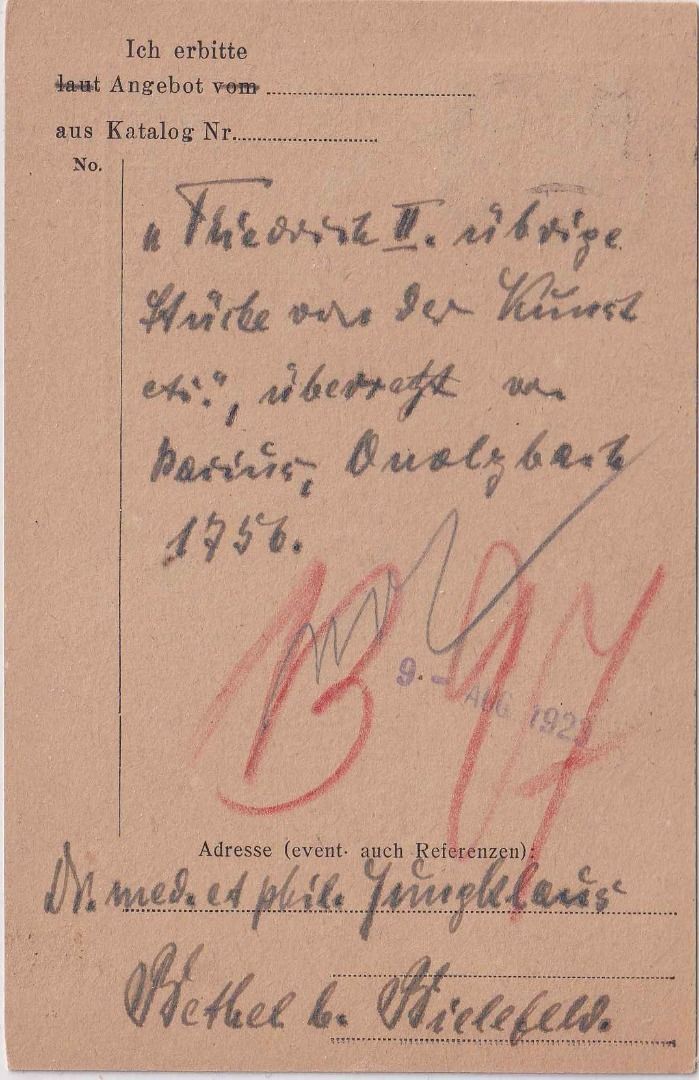 Ich erbitte
laut Angebot vom
aus Katalog Nr.
No.
„Friedrich II. übrige
Stücke von der Kunst
etc.", übersetzt von
Pacius, Onolzbach
1756.
9. - AUG 1923
Adresse (event. auch Referenzen):
Dr. med. et phil. Jungklaus
Bethel b. Bielefeld.